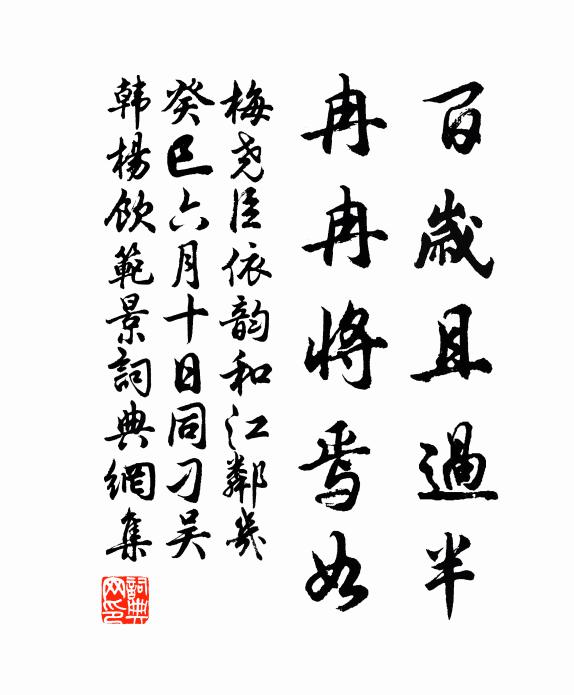 百歲且過半
冉冉將焉如
梅堯臣依韵和江鄰幾
癸巳六月十日同刁吴
韩楊飲範景詞典網集
詞典网印